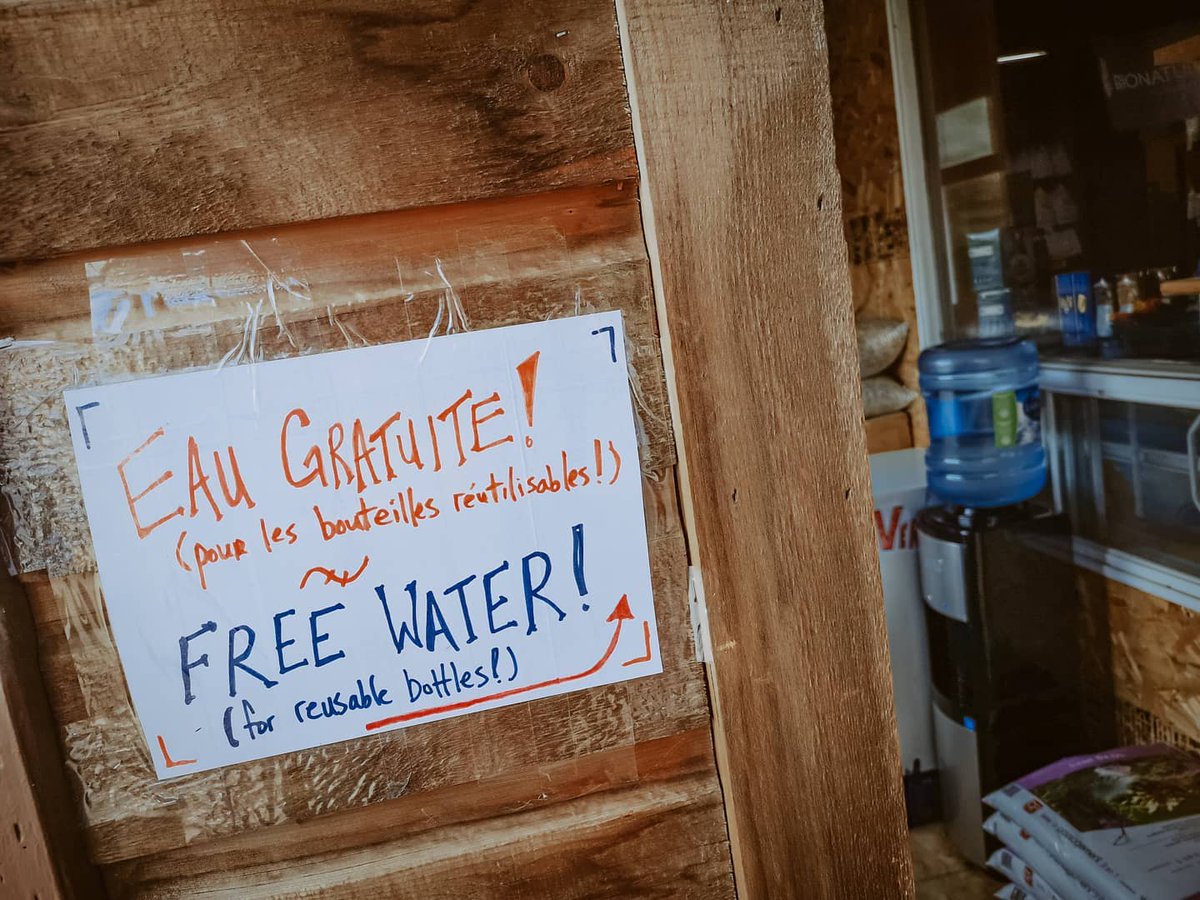 EAU GRATUITE!
(pour les bouteilles réutilisables!)
FREE WATER!
(for reusable bottles!)